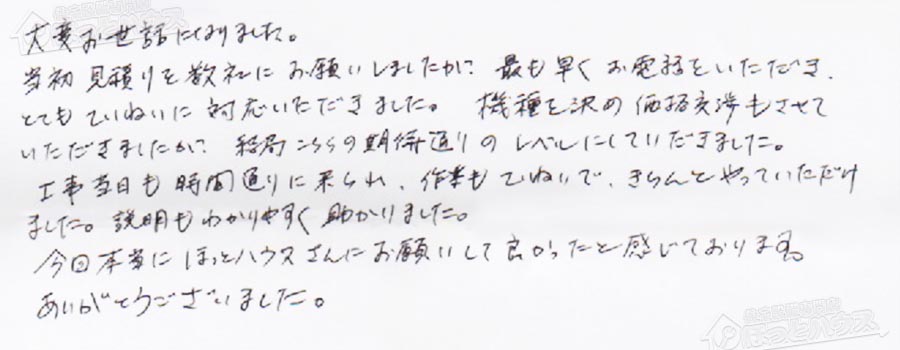 大変お世話になりました。
当初見積りを数社にお願いしましたが、最も早くお電話をいただき、
とてもていねいに対応いただきました。機種を決め価格交渉もさせて
いただきましたが、結局こちらの期待通りのレベルにしていだきました。
工事当日も時間通りに来られ、作業もていねいで、きちんとやっていただけ
ました。説明もわかりやすく助かりました。
今回本当にほっとハウスさんにお願いして良かったと感じております。
ありがとうございました。
ほっとハウス